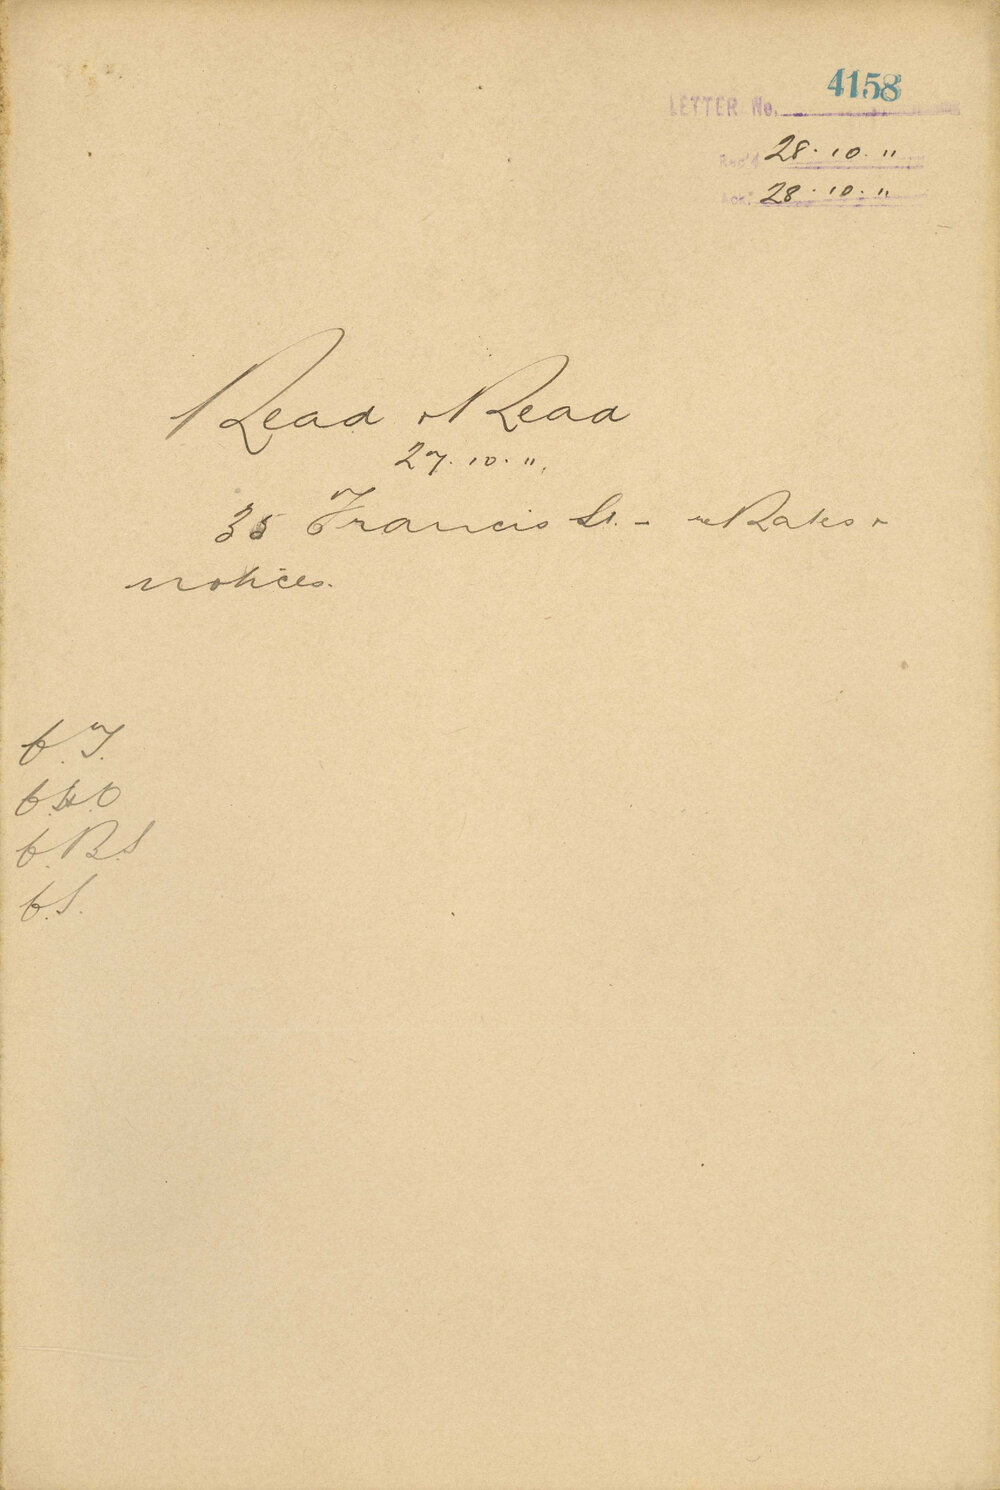 4158
LETTER No.
Rec'd 28.10.11
Ack. 28.10.11
Read & Read
27.10.11.
35 Francis St. - re Rates &
notices.
C.T.
C.H.O
C.B.S
C.S.